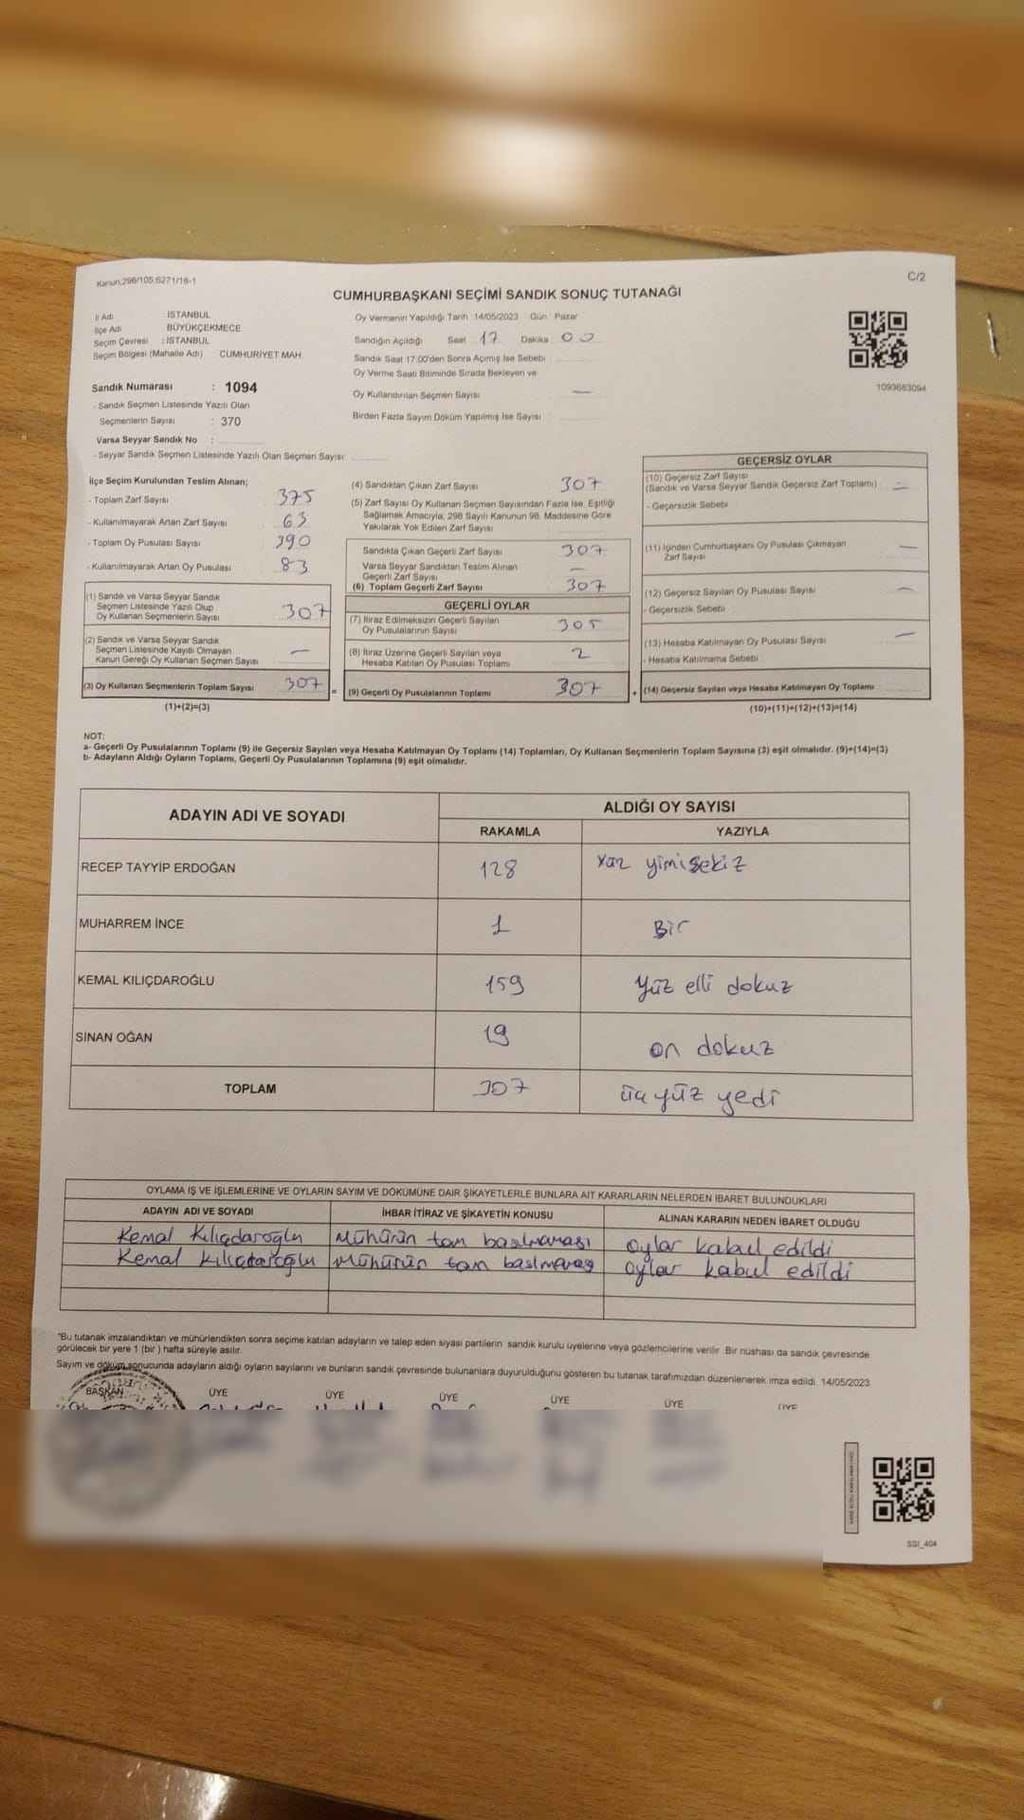 Kanun;298/105;6271/16-1
C/2
CUMHURBAŞKANI SEÇİMİ SANDIK SONUÇ TUTANAĞI
İl Adı : İSTANBUL
İlçe Adı BÜYÜKÇEKMECE
Seçim Çevresi : İSTANBUL
Seçim Bölgesi (Mahalle Adı) CUMHURİYET MAH.
Oy Vermenin Yapıldığı Tarih :14/05/2023 Gün : Pazar
Sandığın Açıldığı Saat 17 Dakika 00
Sandık Saat 17:00'den Sonra Açılmış İse Sebebi
Oy Verme Saati Bitiminde Sırada Bekleyen ve
Oy Kullandırılan Seçmen Sayısı —
Birden Fazla Sayım Döküm Yapılmış İse Sayısı
1093683094
Sandık Numarası : 1094
- Sandık Seçmen Listesinde Yazılı Olan
Seçmenlerin Sayısı : 370
Varsa Seyyar Sandık No :
- Seyyar Sandık Seçmen Listesinde Yazılı Olan Seçmen Sayısı:
İlçe Seçim Kurulundan Teslim Alınan;
- Toplam Zarf Sayısı 375
- Kullanılmayarak Artan Zarf Sayısı 63
- Toplam Oy Pusulası Sayısı 390
- Kullanılmayarak Artan Oy Pusulası 83
(1) Sandık ve Varsa Seyyar Sandık
Seçmen Listesinde Yazılı Olup
Oy Kullanan Seçmenlerin Sayısı 307
(2) Sandık ve Varsa Seyyar Sandık
Seçmen Listesinde Kayıtlı Olmayan
Kanun Gereği Oy Kullanan Seçmen Sayısı —
(3) Oy Kullanan Seçmenlerin Toplam Sayısı 307
(1)+(2)=(3)
(4) Sandıktan Çıkan Zarf Sayısı 307
(5) Zarf Sayısı Oy Kullanan Seçmen Sayısından Fazla İse, Eşitliği
Sağlamak Amacıyla, 298 Sayılı Kanunun 98. Maddesine Göre
Yakılarak Yok Edilen Zarf Sayısı
Sandıkta Çıkan Geçerli Zarf Sayısı 307
Varsa Seyyar Sandıktan Teslim Alınan
Geçerli Zarf Sayısı —
(6) Toplam Geçerli Zarf Sayısı 307
GEÇERLİ OYLAR
(7) İtiraz Edilmeksizin Geçerli Sayılan
Oy Pusulalarının Sayısı 305
(8) İtiraz Üzerine Geçerli Sayılan veya
Hesaba Katılan Oy Pusulası Toplamı 2
(9) Geçerli Oy Pusulalarının Toplamı 307
GEÇERSİZ OYLAR
(10) Geçersiz Zarf Sayısı
(Sandık ve Varsa Seyyar Sandık Geçersiz Zarf Toplamı) —
- Geçersizlik Sebebi
(11) İçinden Cumhurbaşkanı Oy Pusulası Çıkmayan
Zarf Sayısı —
(12) Geçersiz Sayılan Oy Pusulası Sayısı —
- Geçersizlik Sebebi
(13) Hesaba Katılmayan Oy Pusulası Sayısı —
- Hesaba Katılmama Sebebi
(14) Geçersiz Sayılan veya Hesaba Katılmayan Oy Toplamı
(10)+(11)+(12)+(13)=(14)
NOT:
a- Geçerli Oy Pusulalarının Toplamı (9) ile Geçersiz Sayılan veya Hesaba Katılmayan Oy Toplamı (14) Toplamları, Oy Kullanan Seçmenlerin Toplam Sayısına (3) eşit olmalıdır. (9)+(14)=(3)
b- Adayların Aldığı Oyların Toplamı, Geçerli Oy Pusulalarının Toplamına (9) eşit olmalıdır.
ADAYIN ADI VE SOYADI
ALDIĞI OY SAYISI
RAKAMLA YAZIYLA
RECEP TAYYİP ERDOĞAN 128 yüz yimisekiz
MUHARREM İNCE 1 Bir
KEMAL KILIÇDAROĞLU 159 Yüz elli dokuz
SİNAN OĞAN 19 on dokuz
TOPLAM 307 üç yüz yedi
OYLAMA İŞ VE İŞLEMLERİNE VE OYLARIN SAYIM VE DÖKÜMÜNE DAİR ŞİKAYETLERLE BUNLARA AİT KARARLARIN NELERDEN İBARET BULUNDUKLARI
ADAYIN ADI VE SOYADI İHBAR İTİRAZ VE ŞİKAYETİN KONUSU ALINAN KARARIN NEDEN İBARET OLDUĞU
Kemal Kılıçdaroğlu Mühürün tam basılmaması oylar kabul edildi
Kemal Kılıçdaroğlu Mühürün tam oylar kabul edildi
"Bu tutanak imzalandıktan ve mühürlendikten sonra seçime katılan adayların ve talep eden siyasi partilerin sandık kurulu üyelerine veya gözlemcilerine verilir. Bir nüshası da sandık çevresinde
görülecek bir yere 1 (bir ) hafta süreyle asılır.
Sayım ve döküm sonucunda adayların aldığı oyların sayılarını ve bunların sandık çevresinde bulunanlara duyurulduğunu gösteren bu tutanak tarafımızdan düzenlenerek imza edildi. 14/05/2023
BAŞKAN ÜYE ÜYE ÜYE ÜYE ÜYE ÜYE
SSI_404